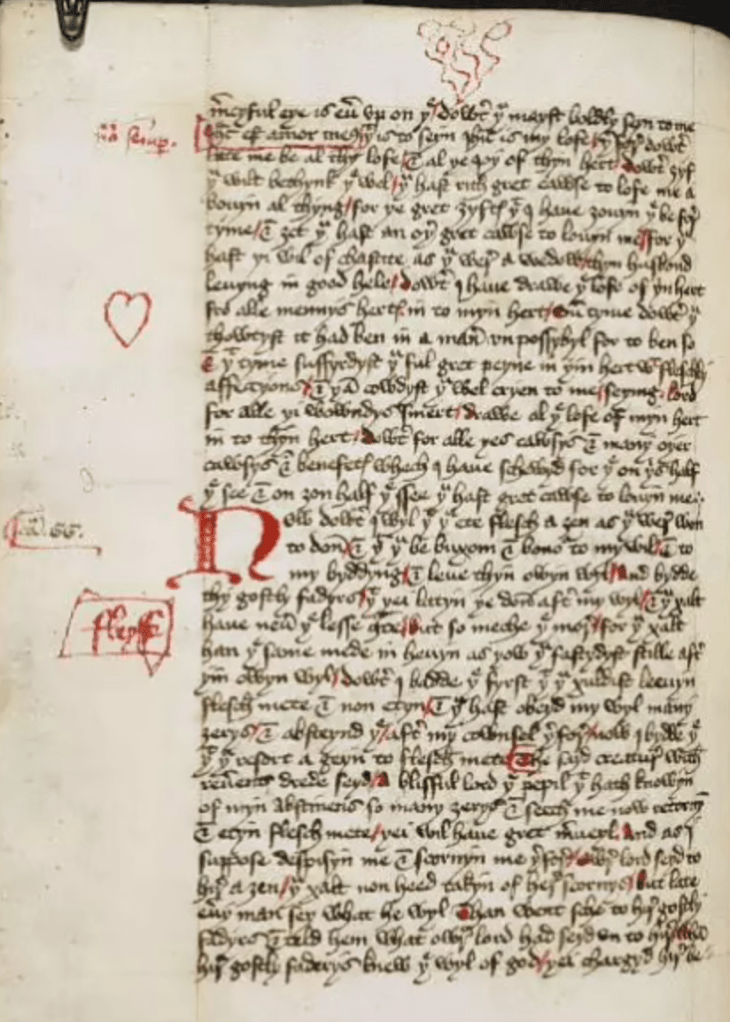 m̄cyful eye is eū vp on yͤ dowtʳ yᵘ mayst boldly seyn to me
Jhc est amor meus yᵗ is to seyn Jhū is my lofe / yʳfor dowtʳ
late me be al thy lofe / & al ye joy of thyn hert / dowtʳ zyf
yᵘ wilt bethynk yͤ wel / yᵘ hast rith gret cawse to lofe me a
bouyn al thyng / for ye gret zyftys yᵗ I haue zouyn yͤ be for
tyme / & zet yᵘ hast an oyʳ gret cawse to louyn me / for yᵘ
hast yi wil of chastite as yᵘ wer a wedow / thyn husbond
leuyng in good hele / dowtʳ I haue drawe yͤ lofe of yin hert
fro alle mennys hertys in to myn hert / Sū tyme dowtʳ yᵘ
thowtyst it had ben in a maner vn possybyl for to ben so
& yᵗ tyme suffyrdyst yᵘ ful gret peyne in yin hert wᵗ fleschly
affeccyons / & yan cowdyst yᵘ wel cryen to me / seying lord
for alle yi wowndys smert / drawe al yͤ lofe of myn hert
in to thyn hert / dowtʳ for alle yes cawsys & many oyer
cawsys & benefetys whech I haue schewyd for yͤ on yis half
yͤ see & on zon half yͤ see yᵘ hast gret cawse to louyn me
Now dowtʳ I wyl yᵗ yᵘ ete flesch a zen as yᵘ wer won
to don / & yᵗ yᵘ be buxom & bonowr to my wil / & to
my byddyng / & leue thyn owyn wyl / And bydde
thy gostly fadyrs / yᵗ yei latyn ye don aftʳ my wyl / & yᵘ xalt
haue neuʳ yͤ lesse gʳce / but so meche yͤ mor / for yᵘ xalt
han yͤ same mede in heuyn as yow yᵘ fastydyst stille aftʳ
yin owyn wyl / dowtʳ I badde yͤ fyrst yᵗ yᵘ xuldist leeuyn
flesch mete & non etyn / & yᵘ hast obeyd my wyl many
zerys / & absteynd yͤ / aftʳ my cownsel / yʳfor / now I bydde yͤ
yᵗ yᵘ resort a geyn to flesch mete / The seyd creatur wᵗh
reuʳent drede seyd / A blisful lord yͤ pepil yᵗ hath knowyn
of myn abstinens so many zerys & seeth me now retornyn
& etyn flesch mete / yei wil haue gret m̄ueyl / And as I
suppose despisyn me & scornyn me yʳfor / owyr lord seyd to
hir a zen / yᵘ xalt non heed takyn of her scornys / but late
euy man sey what he wyl Than went sche to hir gostly
fadyrs & teld hem what owyr lord had seyd vn to hir / whan
hir gostly faderys knew yͤ wyl of god / yei chargyd hir be
ca. 66.
fleysch